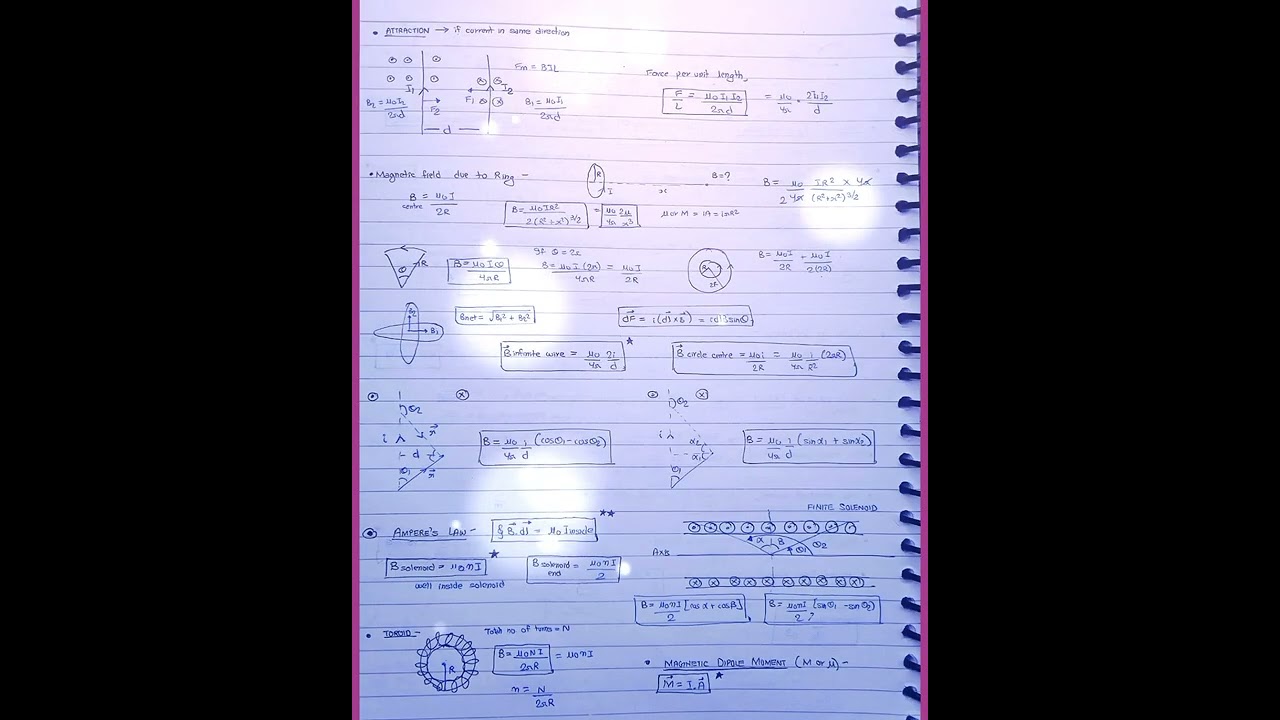 • ATTRACTION → if current in same direction
Fm = BIL
Force per unit length,
I₁ I₂
B₂ = μ₀I₂/2πd F₂ F₁ B₁ = μ₀I₁/2πd
F/L = μ₀I₁I₂/2πd = μ₀/4π · 2I₁I₂/d
d
• Magnetic field due to Ring -
R I x B=?
B centre = μ₀I/2R
B = μ₀IR²/2(R²+x²)^3/2 = μ₀/4π 2μ/x³
μ or M = iA = iπR²
B = μ₀/2 4π IR² × 4π/(R²+x²)^3/2
θ R
B = μ₀Iθ/4πR
If θ = 2π
B = μ₀I(2π)/4πR = μ₀I/2R
R 2R
B = μ₀I/2R + μ₀I/2(2R)
B₂ B₁
Bnet = √B₁² + B₂²
dF = i(dl × B) = idlBsinθ
B infinite wire = μ₀/4π 2i/d
B circle centre = μ₀i/2R = μ₀/4π i/R² (2πR)
⊙ ⊗ ⊙ ⊗
θ₂ i d θ₁ r r
B = μ₀/4π i/d (cosθ₁ - cosθ₂)
θ₂ i α₂ α₁ θ₁
B = μ₀/4π i/d (sinα₁ + sinα₂)
FINITE SOLENOID
AMPERE'S LAW - ∮B.dl = μ₀ I inside
α β θ₁ θ₂
AXIS
B solenoid = μ₀nI
well inside solenoid
B solenoid end = μ₀nI/2
B = μ₀nI/2 [cosα + cosβ]
B = μ₀nI/2 [sinθ₁ - sinθ₂]
?
• TOROID -
Total no of turns = N
R
B = μ₀NI/2πR = μ₀nI
n = N/2πR
• MAGNETIC DIPOLE MOMENT (M or μ) -
M = I.A